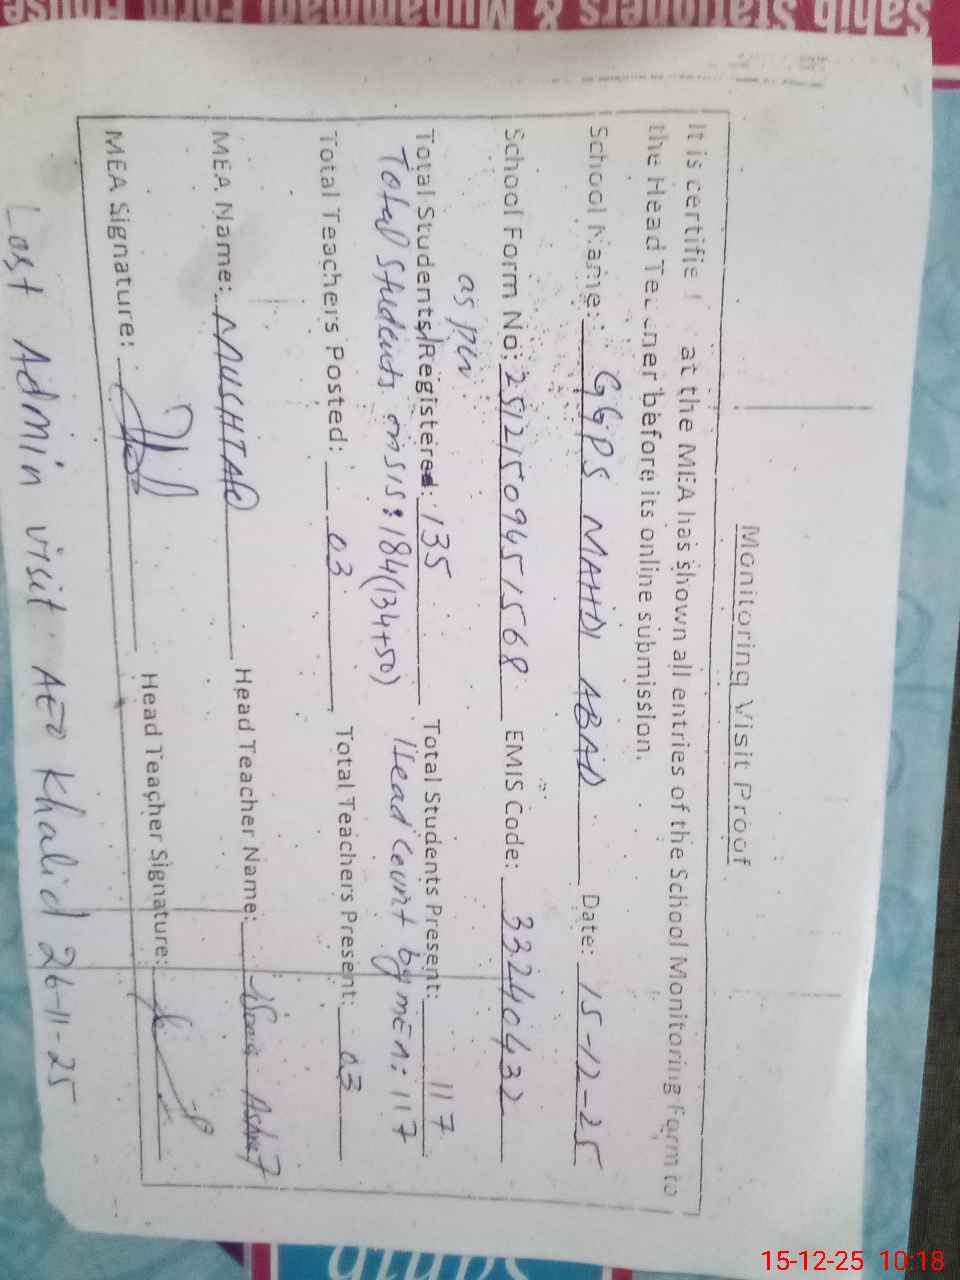 Sahib Stationers & Muhammadi Form House
Monitoring Visit Proof
It is certifie at the MEA has shown all entries of the School Monitoring Form to
the Head Te cher before its online submission.
School Name: GGPS MAHDI ABAD Date: 15-12-25
School Form No: 25121509451568 EMIS Code: 33240432
as per
Total Students Registered: 135 Total Students Present: 117
Total Students on SIS: 184(134+50) Head Count by MEA: 117
Total Teachers Posted: 03 Total Teachers Present: 03
MEA Name: MUSHTAQ Head Teacher Name:
MEA Signature: Head Teacher Signature:
Last Admin visit AEO Khalid 26-11-25
Sahib
15-12-25 10:18